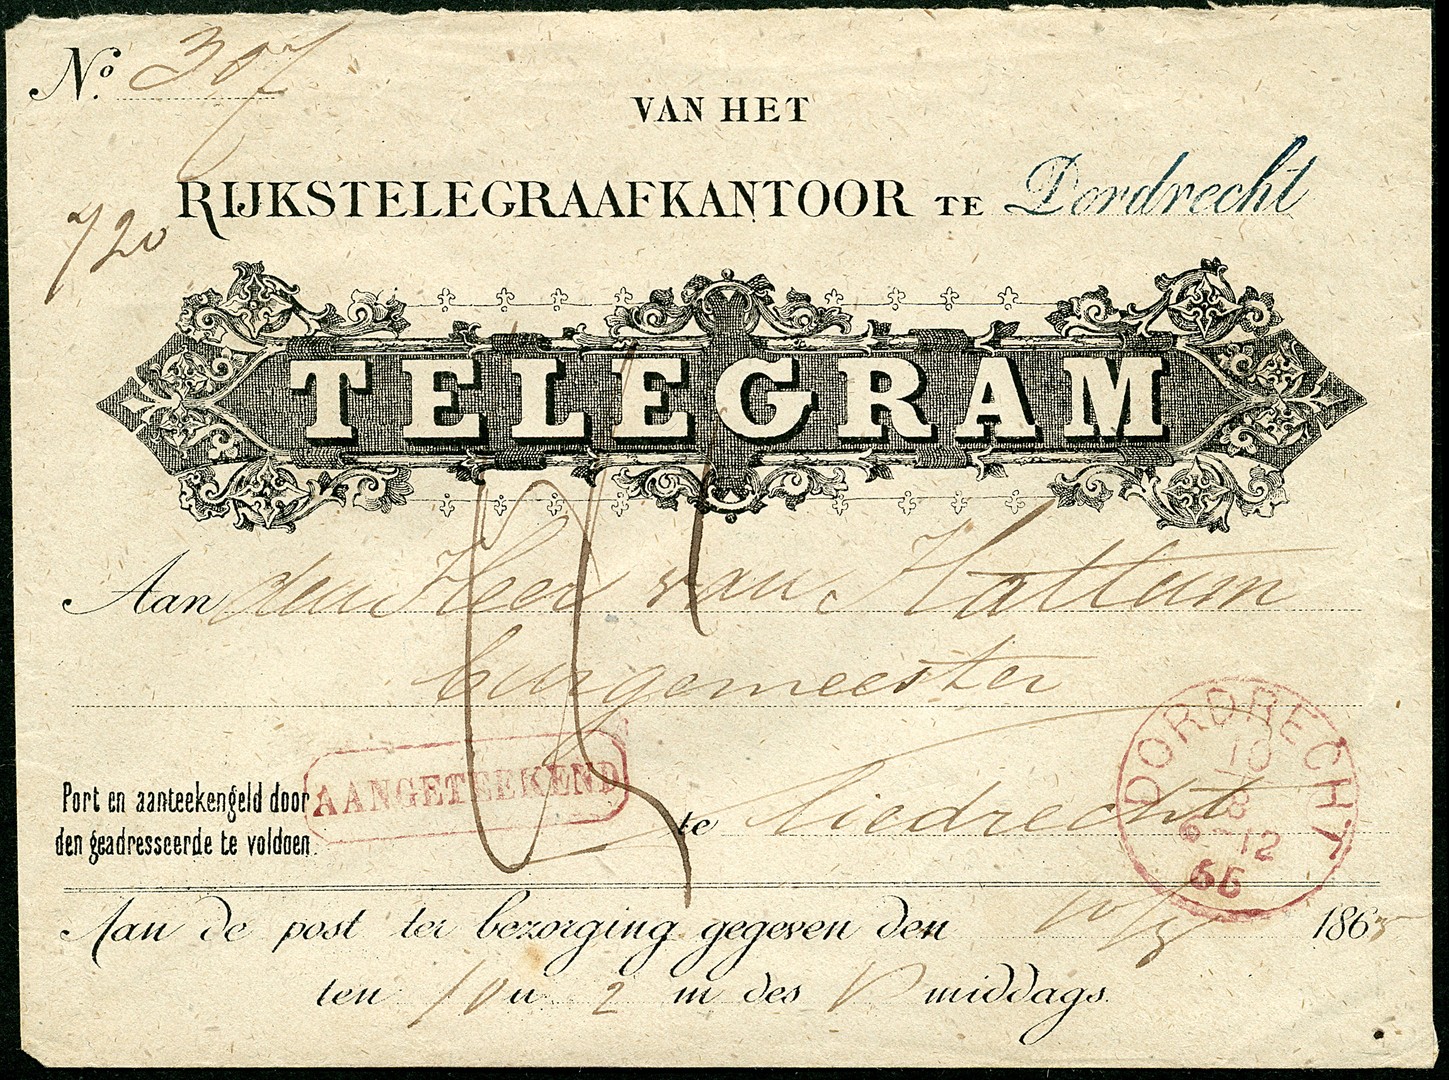 No. 307
VAN HET
RIJKSTELEGRAAFKANTOOR TE Dordrecht
720
TELEGRAM
Aan den Heer van Hattum
burgemeester
Port en aanteekengeld door
den geadresseerde te voldoen.
AANGETEEKEND
te Sliedrecht
DORDRECHT
10
8
9-12
65
Aan de post ter bezorging gegeven den 10/8 1865
ten 10 u 2 m des V middags.